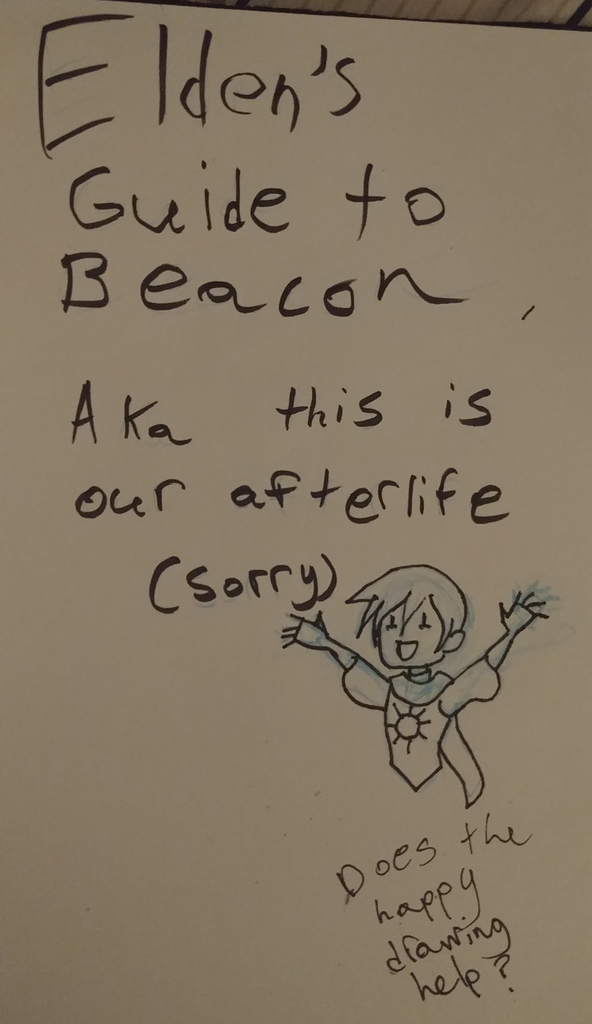 Elden's
Guide to
Beacon
Aka this is
our afterlife
(sorry)
Does the
happy
drawing
help?